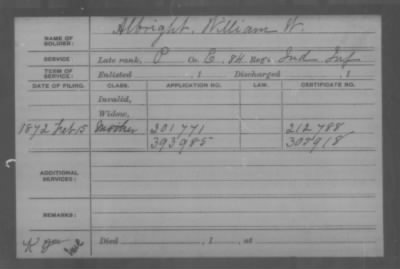 NAME OF SOLDIER: Albright, William W.
SERVICE Late rank, P Co. E, 84 Reg't Ind Inf
TERM OF SERVICE: Enlisted , 1 Discharged , 1
DATE OF FILING. CLASS. APPLICATION NO. LAW. CERTIFICATE NO.
Invalid,
Widow,
1872 Feb 15 Mother 201771 212788
393985 305918
ADDITIONAL SERVICES:
REMARKS:
Died , 1 , at